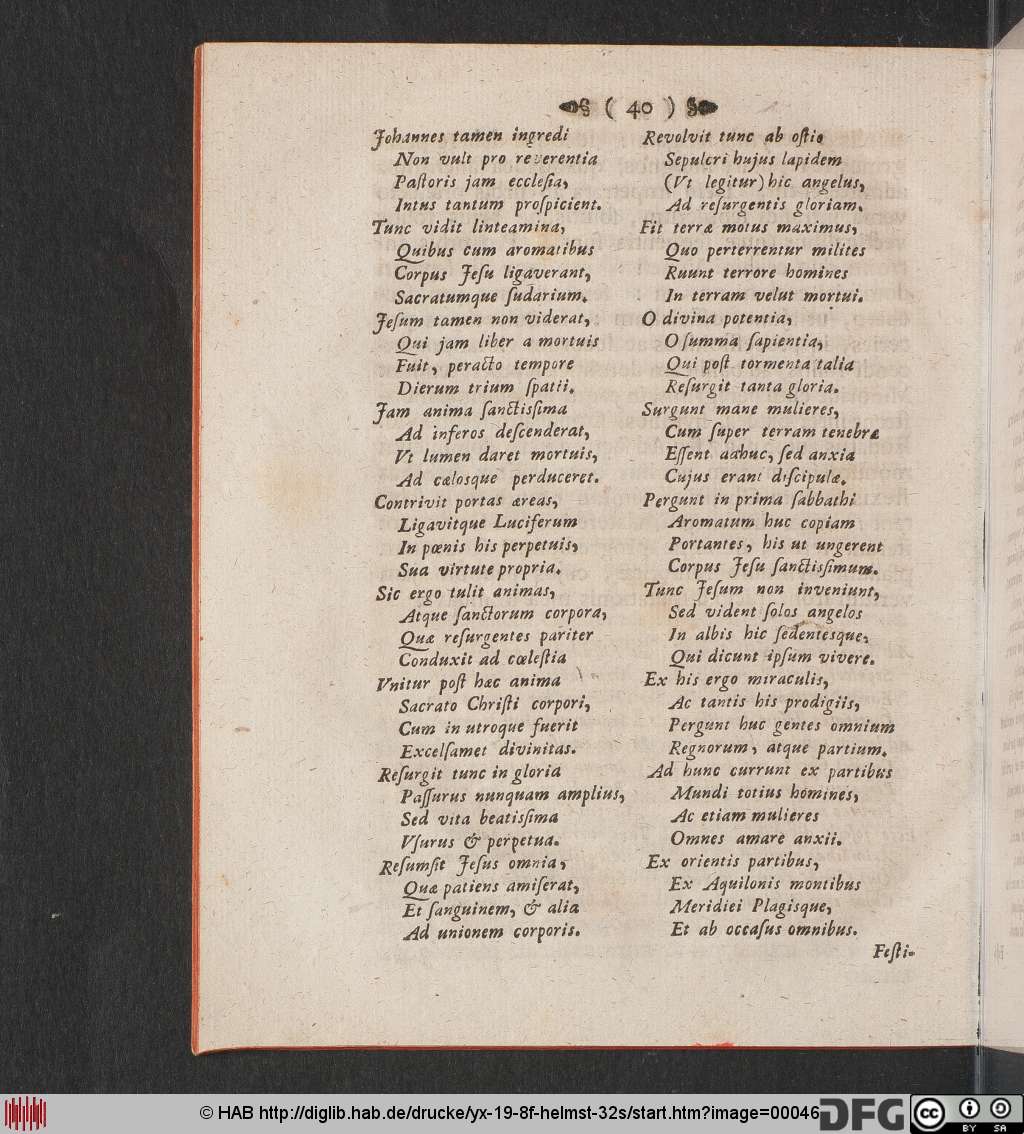 ( 40 )
Johannes tamen ingredi
Non vult pro reverentia
Paſtoris jam eccleſia,
Intus tantum proſpicient.
Tunc vidit linteamina,
Quibus cum aromatibus
Corpus Jeſu ligaverant,
Sacratumque ſudarium.
Jeſum tamen non viderat,
Qui jam liber a mortuis
Fuit, peracto tempore
Dierum trium ſpatii.
Jam anima ſanctisſima
Ad inferos deſcenderat,
Vt lumen daret mortuis,
Ad cælosque perduceret.
Contrivit portas æreas,
Ligavitque Luciferum
In pœnis his perpetuis,
Sua virtute propria.
Sic ergo tulit animas,
Atque ſanctorum corpora,
Quæ reſurgentes pariter
Conduxit ad cœleſtia
Vnitur poſt hæc anima
Sacrato Chriſti corpori,
Cum in utroque fuerit
Excelſamet divinitas.
Reſurgit tunc in gloria
Paſſurus nunquam amplius,
Sed vita beatisſima
Vſurus & perpetua.
Reſumſit Jeſus omnia,
Quæ patiens amiſerat,
Et ſanguinem, & alia
Ad unionem corporis.
Revolvit tunc ab oſtio
Sepulcri hujus lapidem
(Vt legitur) hic angelus,
Ad reſurgentis gloriam.
Fit terræ motus maximus,
Quo perterrentur milites
Ruunt terrore homines
In terram velut mortui.
O divina potentia,
O ſumma ſapientia,
Qui poſt tormenta talia
Reſurgit tanta gloria.
Surgunt mane mulieres,
Cum ſuper terram tenebræ
Eſſent adhuc, ſed anxia
Cujus erant diſcipulæ.
Pergunt in prima ſabbathi
Aromatum huc copiam
Portantes, his ut ungerent
Corpus Jeſu ſanctisſimum.
Tunc Jeſum non inveniunt,
Sed vident ſolos angelos
In albis hic ſedentesque,
Qui dicunt ipſum vivere.
Ex his ergo miraculis,
Ac tantis his prodigiis,
Pergunt huc gentes omnium
Regnorum, atque partium.
Ad hunc currunt ex partibus
Mundi totius homines,
Ac etiam mulieres
Omnes amare anxii.
Ex orientis partibus,
Ex Aquilonis montibus
Meridiei Plagisque,
Et ab occaſus omnibus.
Feſti-
© HAB http://diglib.hab.de/drucke/yx-19-8f-helmst-32s/start.htm?image=00046
DFG
cc BY SA